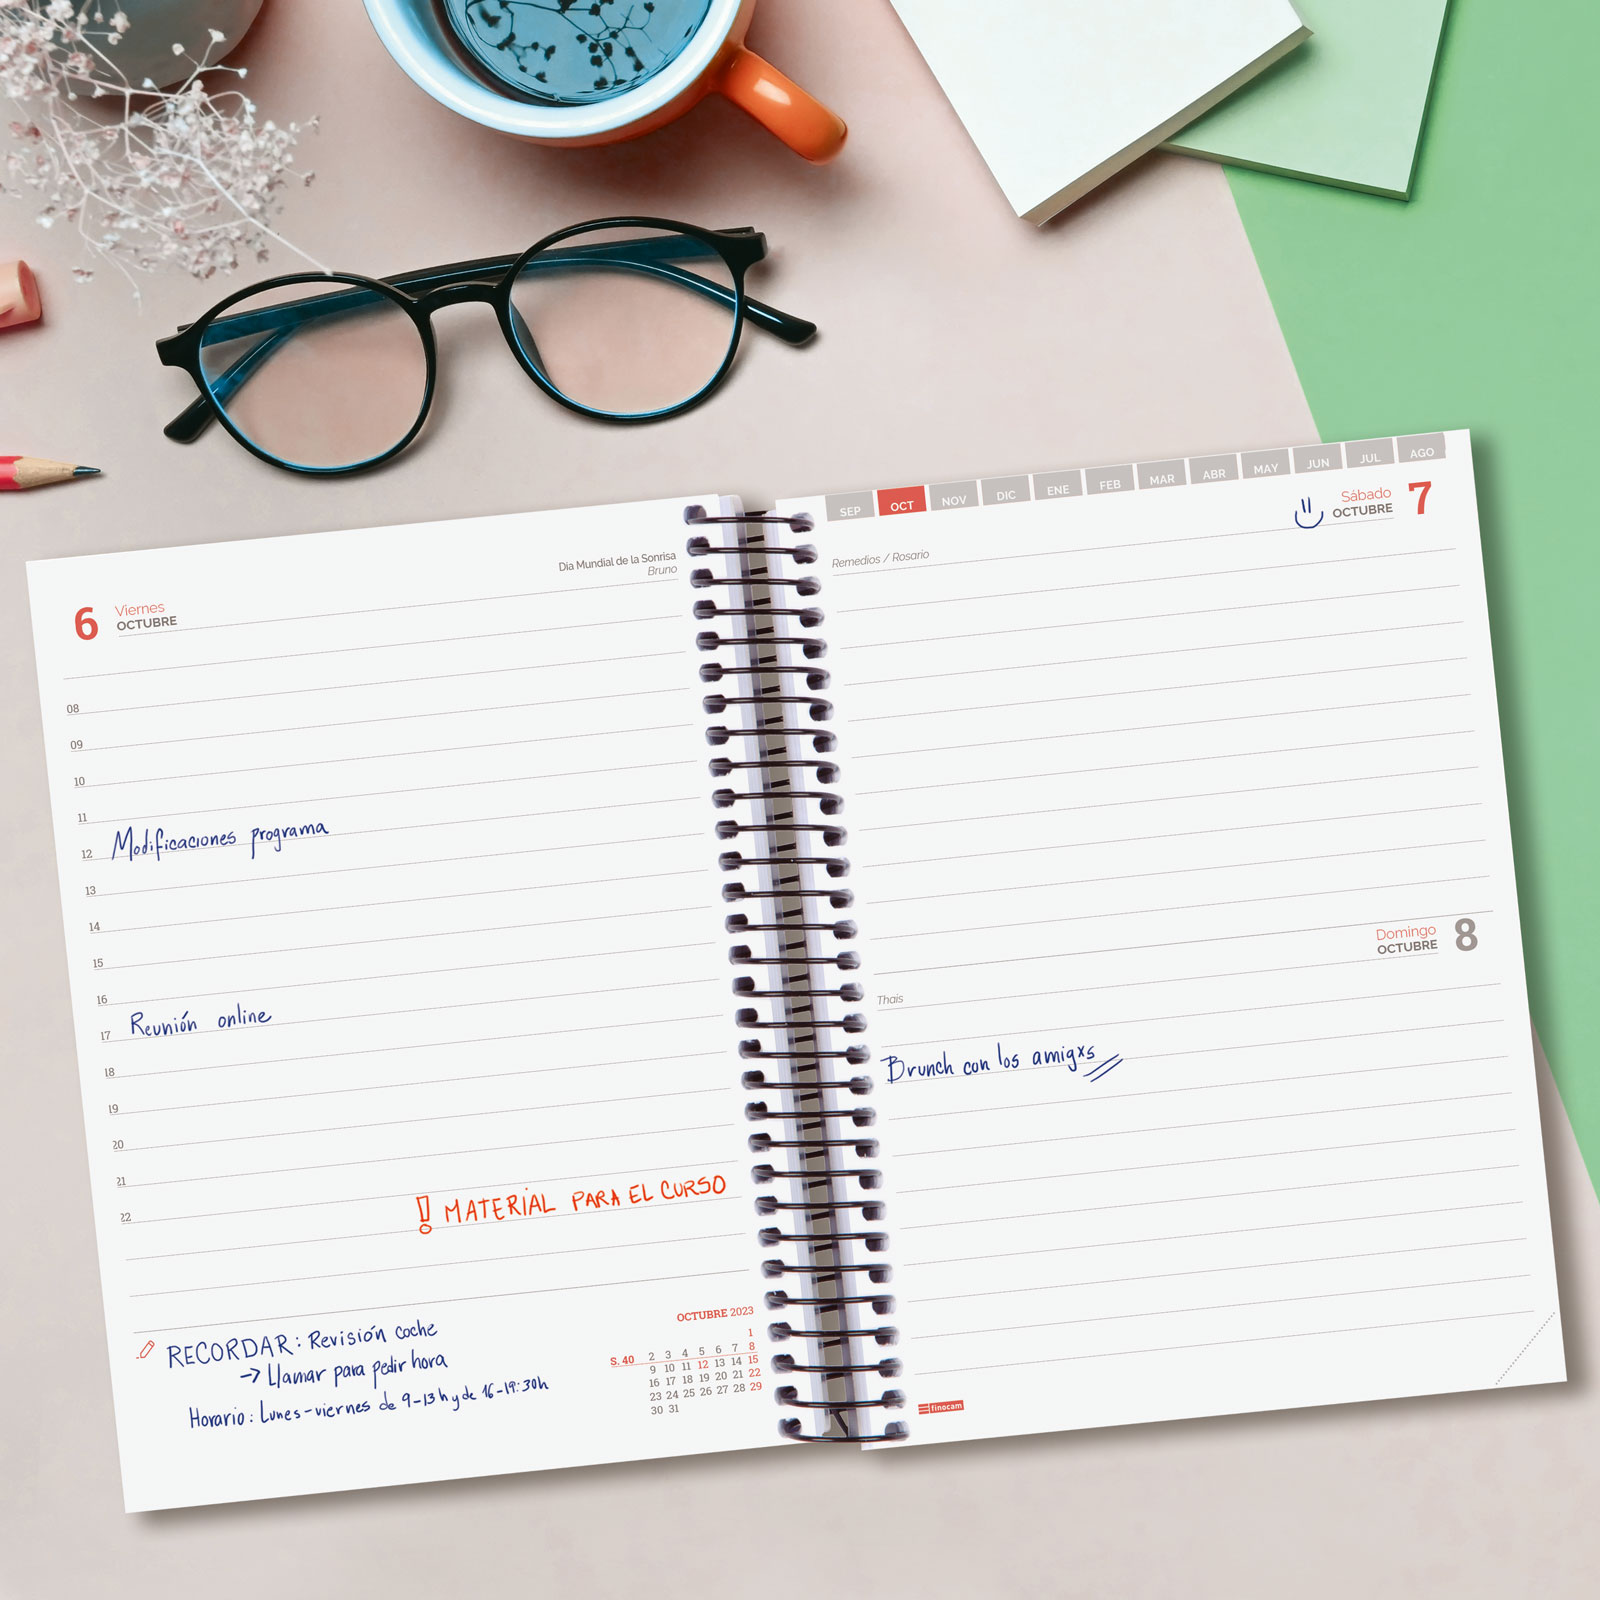 6 Viernes
OCTUBRE
Dia Mundial de la Sonrisa
Bruno
08
09
10
11
12 Modificaciones programa
13
14
15
16
17 Reunión online
18
19
20
21
22
! MATERIAL PARA EL CURSO
RECORDAR: Revisión coche
→ Llamar para pedir hora
Horario: Lunes-viernes de 9-13h y de 16-19:30h
OCTUBRE 2023
1
S. 40 2 3 4 5 6 7 8
9 10 11 12 13 14 15
16 17 18 19 20 21 22
23 24 25 26 27 28 29
30 31
SEP OCT NOV DIC ENE FEB MAR ABR MAY JUN JUL AGO
Sábado 7
OCTUBRE
Remedios / Rosario
Domingo 8
OCTUBRE
Thais
Brunch con los amigxs
finocam